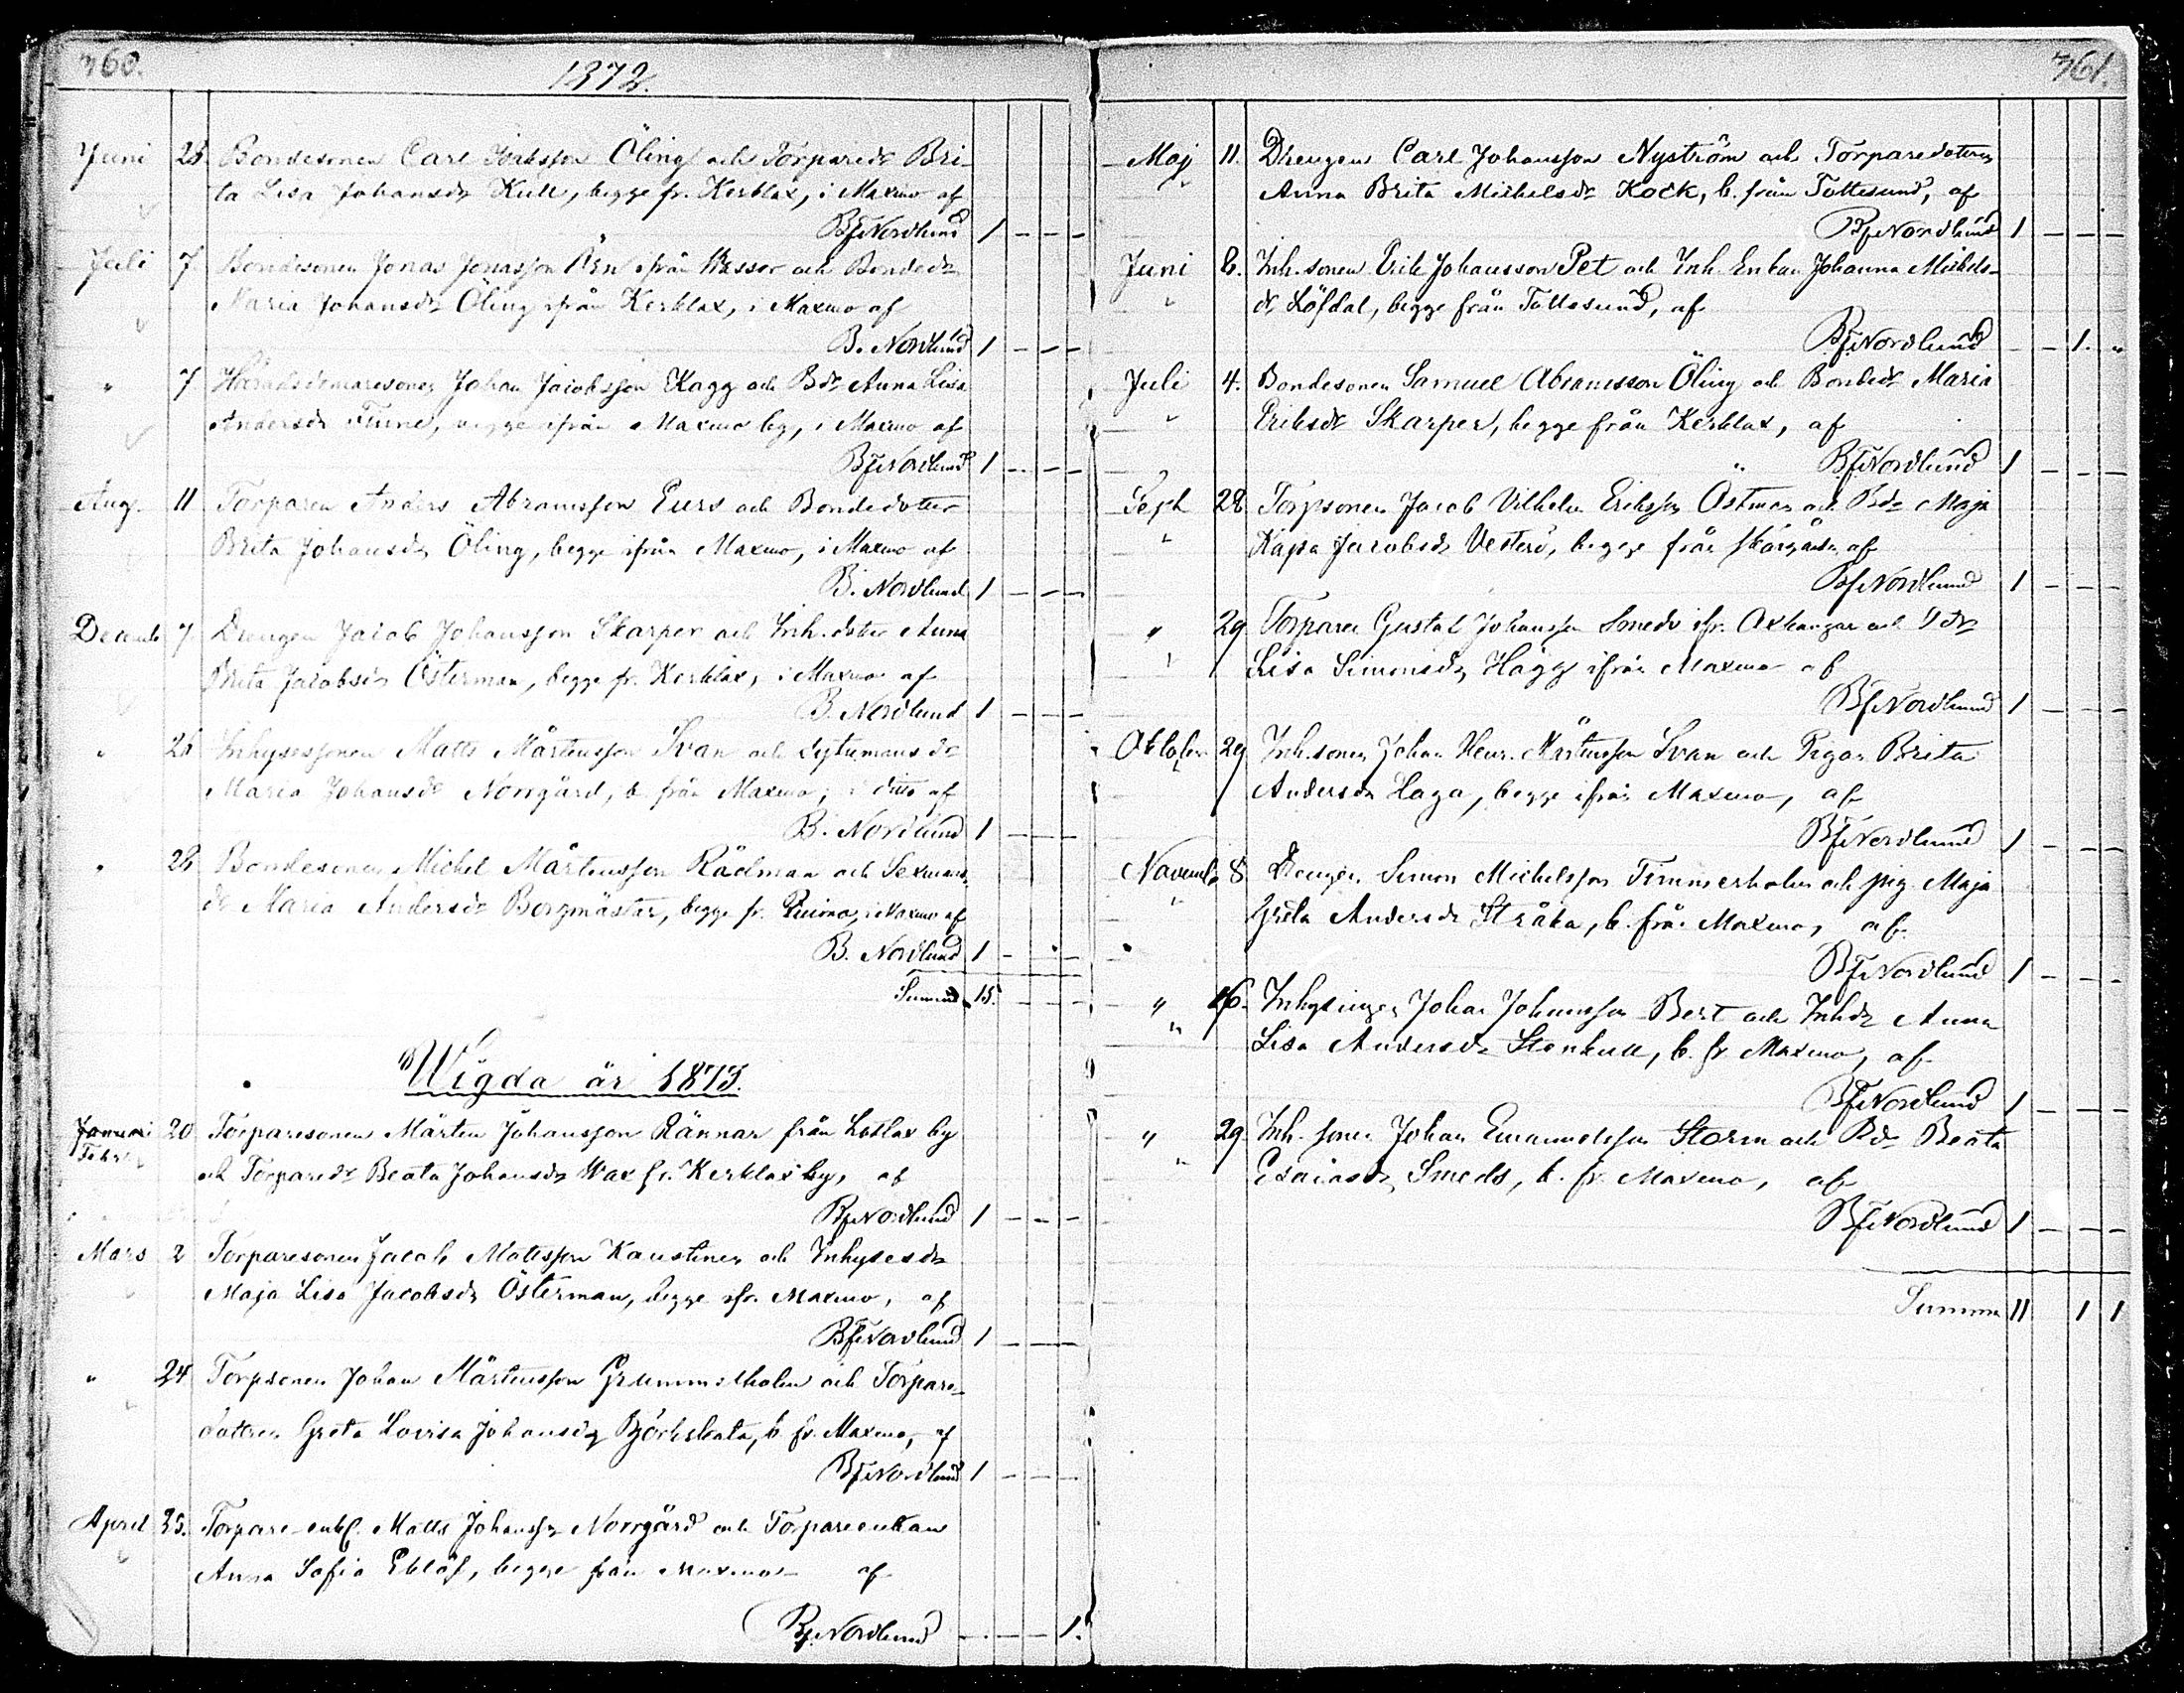 360.
1872.
Juni 23. Bondesonen Carl Öling och Torparedr Bri-
ta Lisa Johansdr Kull, begge fr. Kerklax, i Maxmo af
BfNordlund 1 - - -
Juli 7 Bondesonen Jonas Jonasson från och Bondedr
Maria Johansdr Öling ifrån Kerklax, i Maxmo af
B. Nordlund 1 - - -
" 7 Johan Jacobsson Kagg och Bdr Anna Lisa
Andersdr begge ifrån Maxmo by, i Maxmo af
BfNordlund 1 - - -
Aug. 11 Torparen Anders Abramsson och Bondedotter
Brita Johansdr Öling, begge ifrån Maxmo, i Maxmo af
B. Nordlund 1 - - -
Decemb 7 Drengen Jacob Johansson Skarper och Inh. dotter Anna
Brita Jacobsdr Österman, begge fr. Kerklax, i Maxmo af
B. Nordlund 1 - - -
" 26 Inhysessonen Matts Mårtensson Svan och dr
Maria Johansdr Norrgård, b. från Maxmo, i ditto af
B. Nordlund 1 - - -
" 28 Bondesonen Michel Mårtensson Rådman och Sexmans-
dr Maria Andersdr Bergmästar, begge fr. i Maxmo af
B. Nordlund 1 - - -
Summa 15. - - -
Wigda år 1873.
Januari 20 Torparesonen Mårten Johansson Rännar från by
Febr.
och Torparedr Beata Johansdr Wax fr. Kerklax by, af
BfNordlund 1 - - -
Mars 2 Torparesonen Jacob Mattsson Kaustinen och Inhysesdr
Maja Lisa Jacobsdr Österman, begge ifr. Maxmo, af
BfNordlund 1 - - -
" 24 Torpsonen Johan Mårtensson och Torpare-
dottren Greta Lovisa Johansdr Björkskata, b. fr. Maxmo, af
BfNordlund 1 - - -
April 25. Torpare-enkl. Matts Johanss. Norrgård och Torpareenkan
Anna Sofia Eklöf, begge från Maxmo af
BfNordlund - - - 1.
361.
Maj 11. Drengen Carl Johansson Nyström och Torparedottren
" Anna Brita Michelsdr Kock, b. från Tottesund, af
BfNordlund 1 - - -
Juni 8. Inh. sonen Erik Johansson Pet och Inh. Enkan Johanna Michels-
" dr Löfdal, begge från Tottesund, af
BfNordlund - - 1. "
Juli 4. Bondesonen Samuel Abramsson Öling och Bondedr Maria
" Eriksdr Skarper, begge från Kerklax, af
" BfNordlund 1 - - -
Sept 28 Torpsonen Jacob Vilhelm Eriksson Östman och Bdr Maja
" Kajsa Jacobsdr Vesterö, begge från af
BfNordlund 1 - - -
" 29 Torparen Gustaf Johansson Smeds ifr. Oxkangar och Tdr
Lisa Simonsdr Hägg ifrån Maxmo af
BfNordlund 1 - - -
Oktober 29 Inh. sonen Johan Henr. Mårtensson Svan och Pigan Brita
Andersdr Haga, begge ifrån Maxmo, af
BfNordlund 1 - - -
Novemb 8 Drengen Simon Michelsson Timmerholm och pig. Maja
" Greta Andersdr Stråka, b. från Maxmo, af
BfNordlund 1 - - -
" 16. Inhysingen Johan Johansson Bert och Inhdr Anna
" Lisa Andersdr Stenkull, b. fr Maxmo, af
BfNordlund 1 - - -
" 29 Inh. sonen Johan Emanuelsson Storm och Bdr Beata
" Esaiasdr Smeds, b. fr. Maxmo, af
BfNordlund 1 - - -
Summa 11 1 1